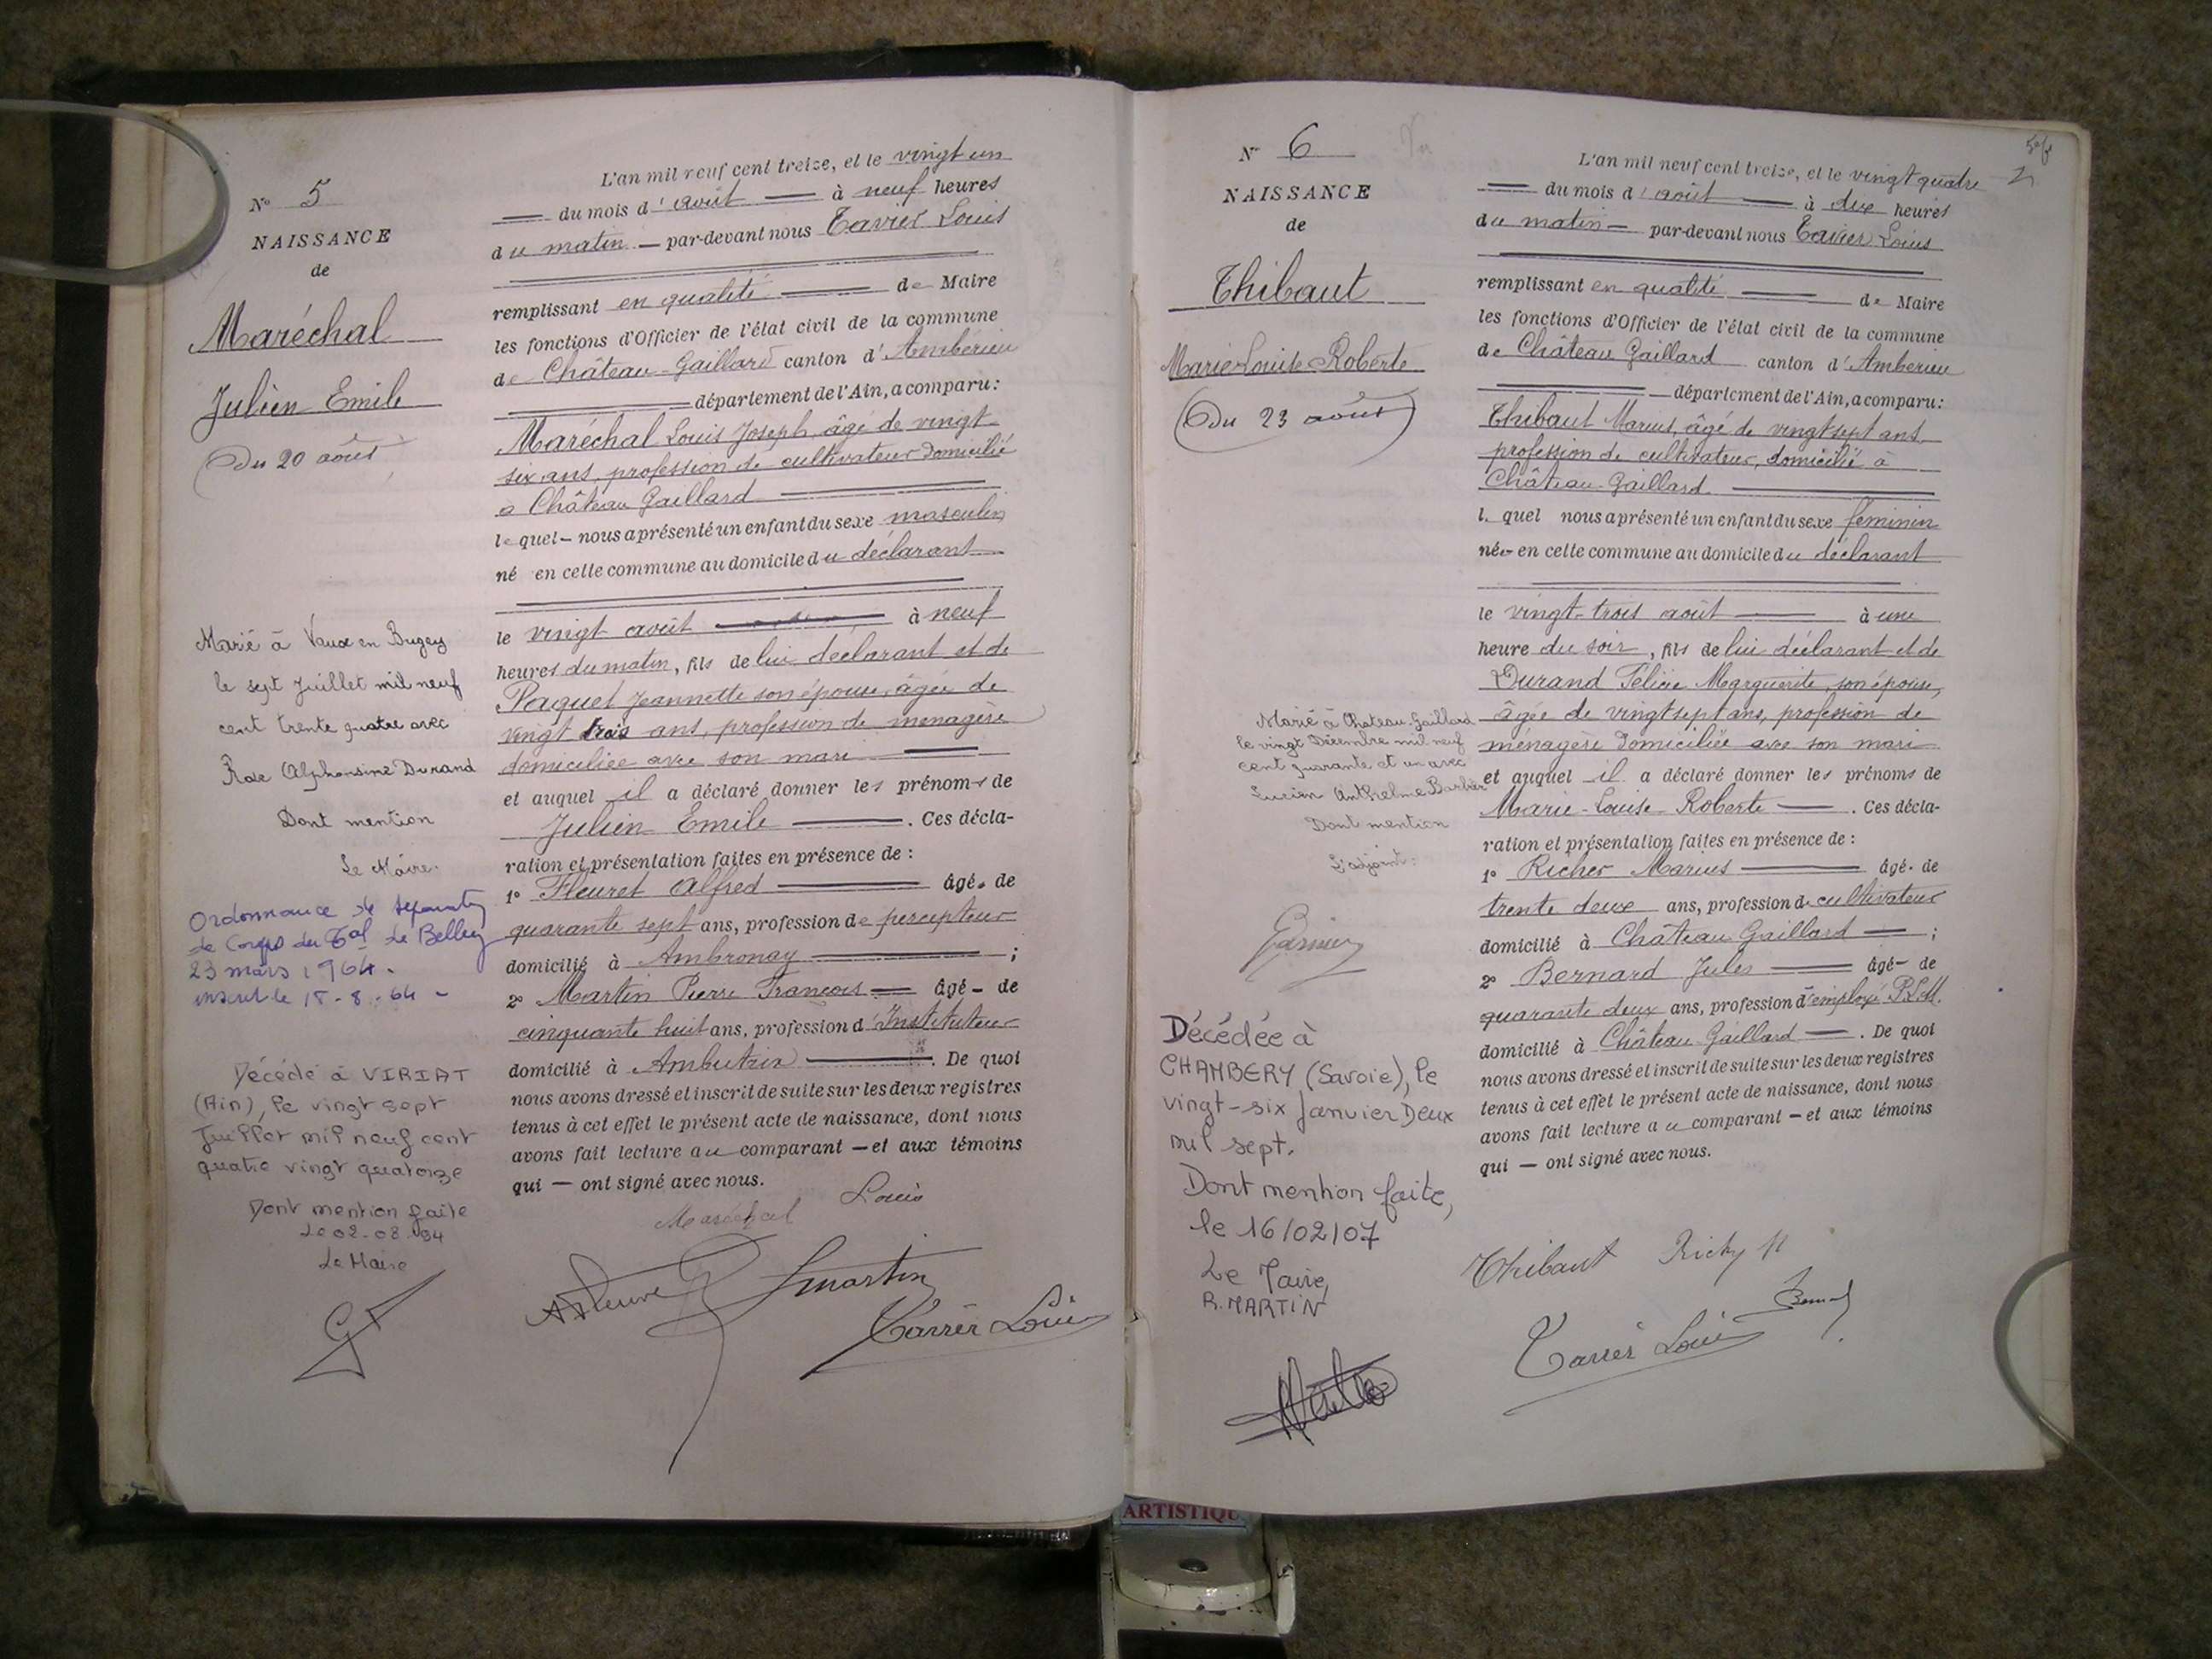 N° 5
NAISSANCE
de
Maréchal
Julien Emile
(Du 20 août)
Marié à Vaux en Bugey
le sept Juillet mil neuf
cent trente quatre avec
Rose Alphonsine Durand
Dont mention
Le Maire.
Ordonnance de séparation
de Corps du Tal de Belley
23 mars 1964.
inscrit le 18-8-64-
Décédé à VIRIAT
(Ain), le vingt sept
Juillet mil neuf cent
quatre vingt quatorze
Dont mention faite
Le 02-08-94
Le Maire
L'an mil neuf cent treize, et le vingt un
du mois d'août à neuf heures
du matin — par-devant nous Tavier Louis
remplissant en qualité de Maire
les fonctions d'Officier de l'état civil de la commune
de Château-Gaillard canton d'Ambérieu
département de l'Ain, a comparu:
Maréchal Louis Joseph, âgé de vingt
six ans, profession de cultivateur Domicilié
à Château Gaillard
lequel — nous a présenté un enfant du sexe masculin
né en cette commune au domicile du déclarant
le vingt août à neuf
heures du matin, fils de lui déclarant et de
Paquet Jeannette son épouse, âgée de
vingt trois ans, profession de ménagère
domiciliée avec son mari
et auquel il a déclaré donner les prénoms de
Julien Emile . Ces décla-
ration et présentation faites en présence de :
1° Fleuret Alfred âgé. de
quarante sept ans, profession de percepteur
domicilié à Ambronay ;
2° Martin Pierre François âgé - de
cinquante huit ans, profession d'Instituteur
domicilié à Ambutrix . De quoi
nous avons dressé et inscrit de suite sur les deux registres
tenus à cet effet le présent acte de naissance, dont nous
avons fait lecture au comparant — et aux témoins
qui — ont signé avec nous.
Maréchal Louis
A Fleuret Martin
Tavier Louis
N° 6
NAISSANCE
de
Thibaut
Marie-Louise-Roberte
(Du 23 août)
Marié à Chateau-Gaillard
le vingt Décembre mil neuf
cent quarante et un avec
Lucien Anthelme Barbier
Dont mention
L'adjoint:
Décédée à
CHAMBERY (Savoie), le
vingt-six Janvier Deux
mil sept.
Dont mention faite,
le 16/02/07
Le Maire,
R. MARTIN
L'an mil neuf cent treize, et le vingt quatre
du mois d'août à dix heures
du matin — par-devant nous Tavier Louis
remplissant en qualité de Maire
les fonctions d'Officier de l'état civil de la commune
de Château Gaillard canton d'Ambérieu
département de l'Ain, a comparu:
Thibaut Marius, âgé de vingt sept ans
profession de cultivateur, domicilié à
Château-Gaillard
lequel nous a présenté un enfant du sexe féminin
née en cette commune au domicile du déclarant
le vingt-trois août à une
heure du soir, fils de lui déclarant et de
Durand Félicie Marguerite, son épouse,
âgée de vingt sept ans, profession de
ménagère Domiciliée avec son mari
et auquel il a déclaré donner les prénoms de
Marie-Louise-Roberte . Ces décla-
ration et présentation faites en présence de :
1° Richer Marius âgé. de
trente deux ans, profession de cultivateur
domicilié à Château Gaillard ;
2° Bernard Jules âgé - de
quarante deux ans, profession d'employé P.L.M.
domicilié à Château Gaillard . De quoi
nous avons dressé et inscrit de suite sur les deux registres
tenus à cet effet le présent acte de naissance, dont nous
avons fait lecture au comparant — et aux témoins
qui — ont signé avec nous.
Thibaut
Bernard
Tavier Louis
ARTISTIQU